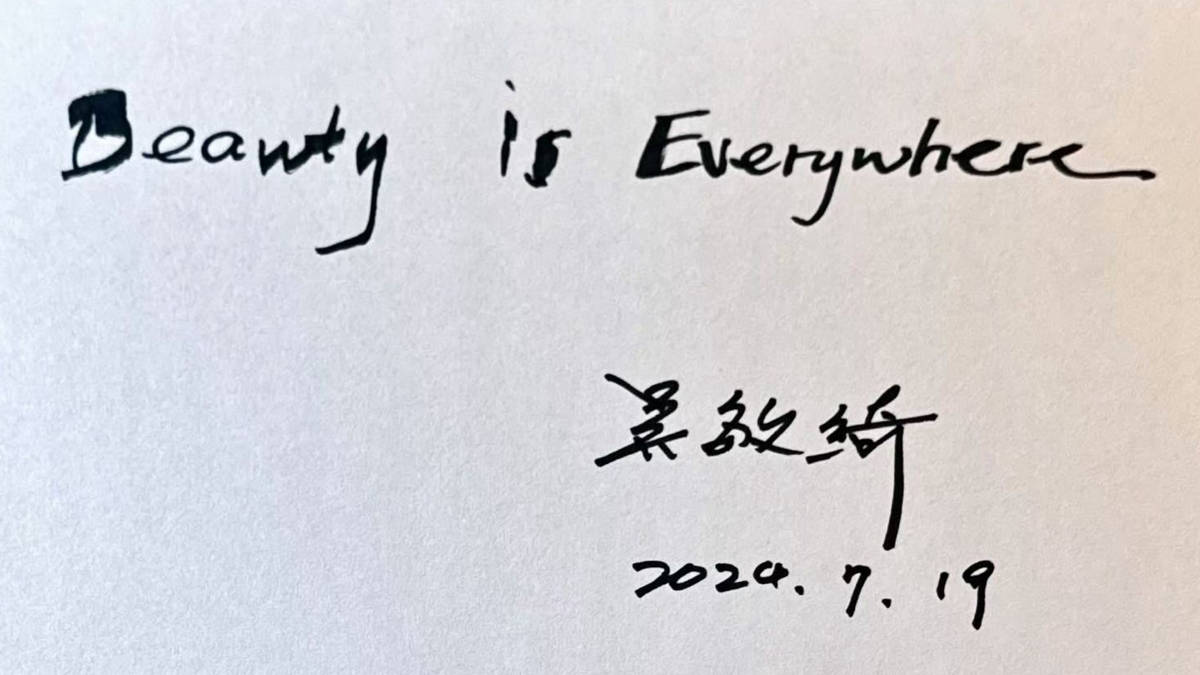 Beauty is Everywhere
吴敏绮
2024. 7. 19